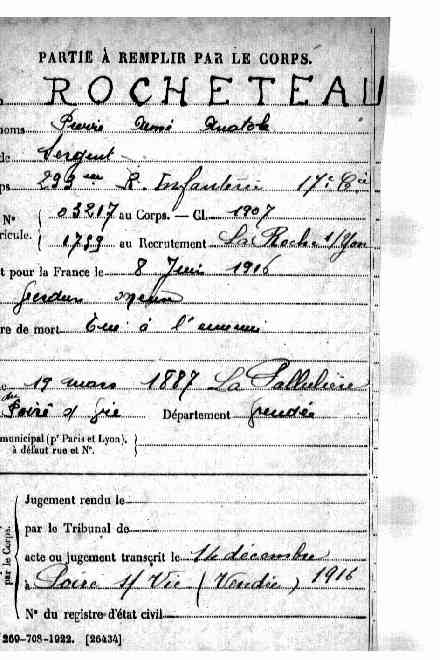 PARTIE À REMPLIR PAR LE CORPS.
ROCHETEAU
noms Pierre Aimé Anatole
de Sergent
ps 293 me R. Infanterie 17e Cie
N° { 03217 au Corps. — Cl. 1907
ricule. { 1793 au Recrutement La Roche s/Yon
t pour la France le 8 Juin 1916
Verdun Meuse
re de mort Tué à l'ennemi
19 mars 1887 La
Poiré s/ Vie Département Vendée
municipal (pr Paris et Lyon),
à défaut rue et N°.
Jugement rendu le
par le Tribunal de
acte ou jugement transcrit le 14 décembre
à Poiré s/ Vie (Vendée) 1916
N° du registre d'état civil
par le Corps.
269-708-1922. [26434]